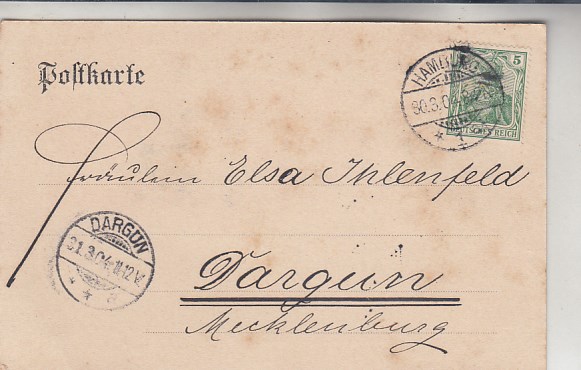 Postkarte
5
HAMBURG
30.3.04
* 1
DEUTSCHES REICH
Fräulein Elsa Ihlenfeld
DARGUN
31.3.04. 11-12 V.
* * *
Dargun
Mecklenburg